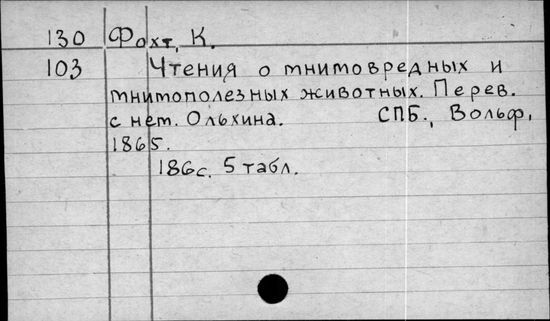 130 Фохт, К.
103 Чтения о мнимовредных и
мнимополезных животных. Перев.
с нем. Ольхина. СПБ., Вольф,
1865.
186с. 5 табл.